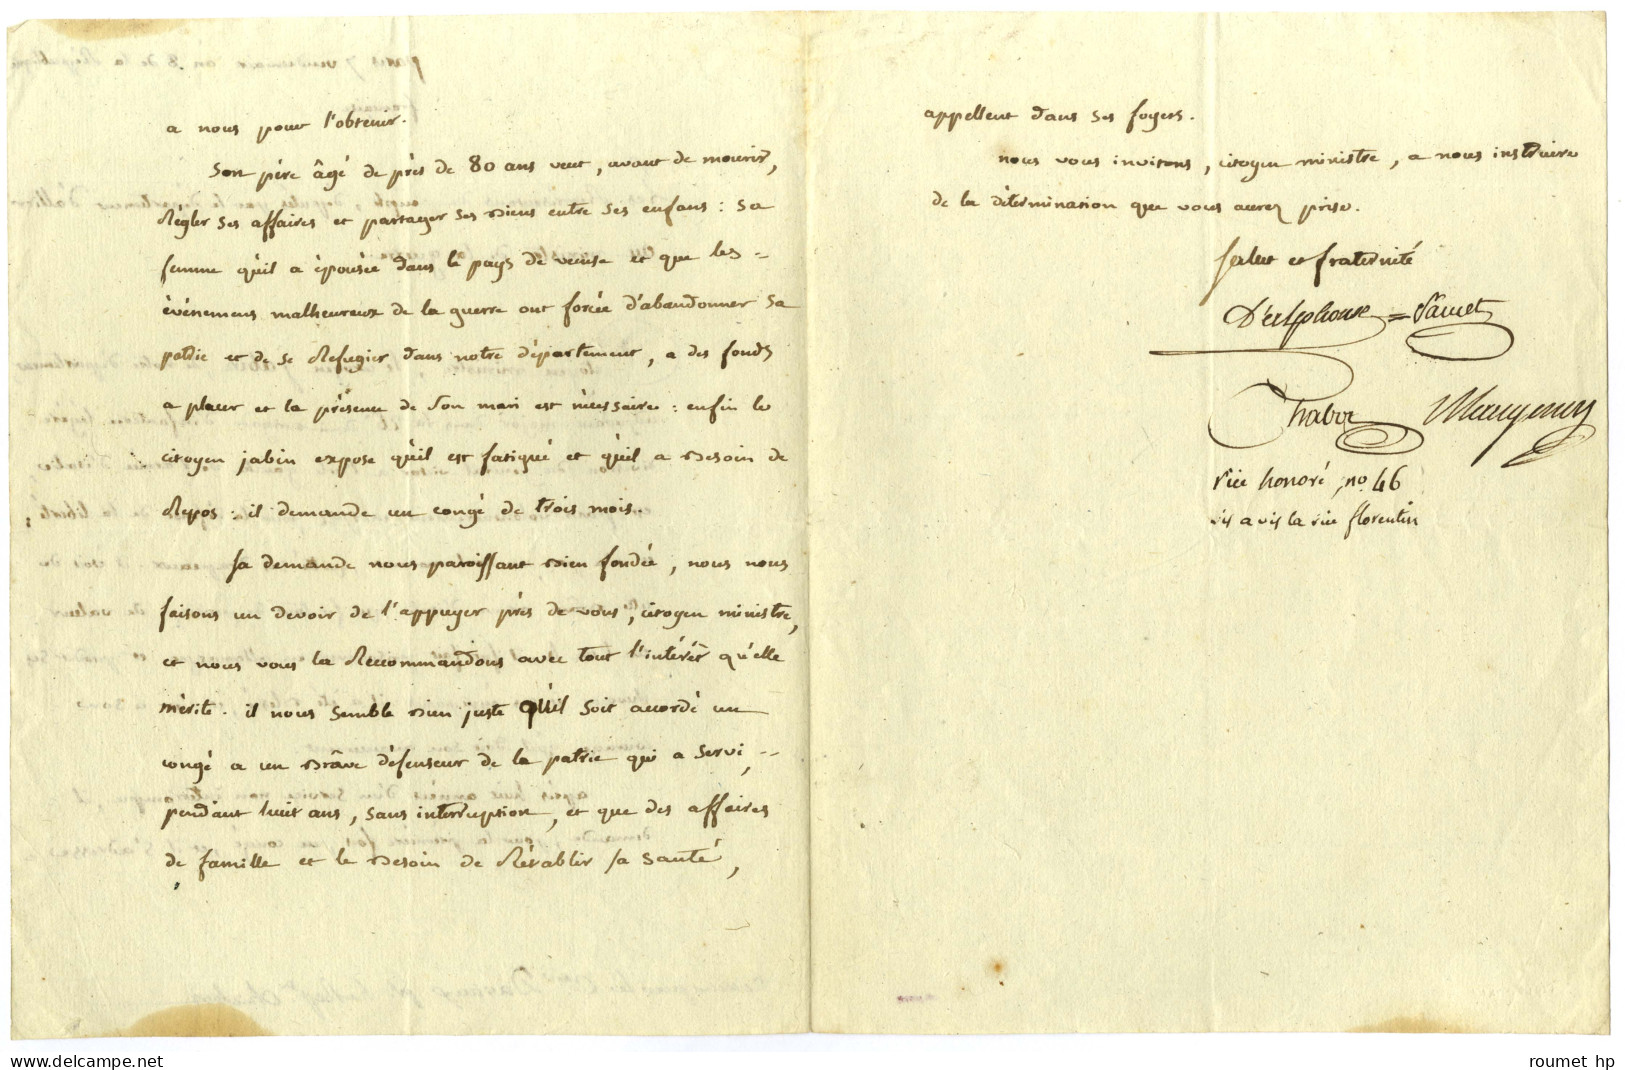 a nous pour l'obtenir.
Son père âgé de près de 80 ans veut, avant de mourir,
Régler ses affaires et partager ses biens entre ses enfans : sa
femme qu'il a épousée dans le pays de venise et que les
évènemens malheureux de la guerre ont forcée d'abandonner sa
patrie et de se Refugier dans notre département, a des fonds
a placer et la présence de son mari est nécessaire : enfin le
citoyen jabin expose qu'il est fatigué et qu'il a besoin de
Repos : il demande un congé de trois mois.
sa demande nous paroissant bien fondée, nous nous
faisons un devoir de l'appuyer près de vous, citoyen ministre,
et nous vous la Recommandons avec tout l'intérêt qu'elle
mérite. il nous semble bien juste qu'il soit accordé un
congé a un brave défenseur de la patrie qui a servi,
pendant huit ans, sans interruption, et que des affaires
de famille et le besoin de Rétablir sa santé,
appellent dans ses foyers.
nous vous invitons, citoyen ministre, a nous instruire
de la détermination que vous aurez prise.
salut et fraternité
Chabot
rue honoré, no. 46
vis a vis la rue florentin
delcampe.net
roumet hp